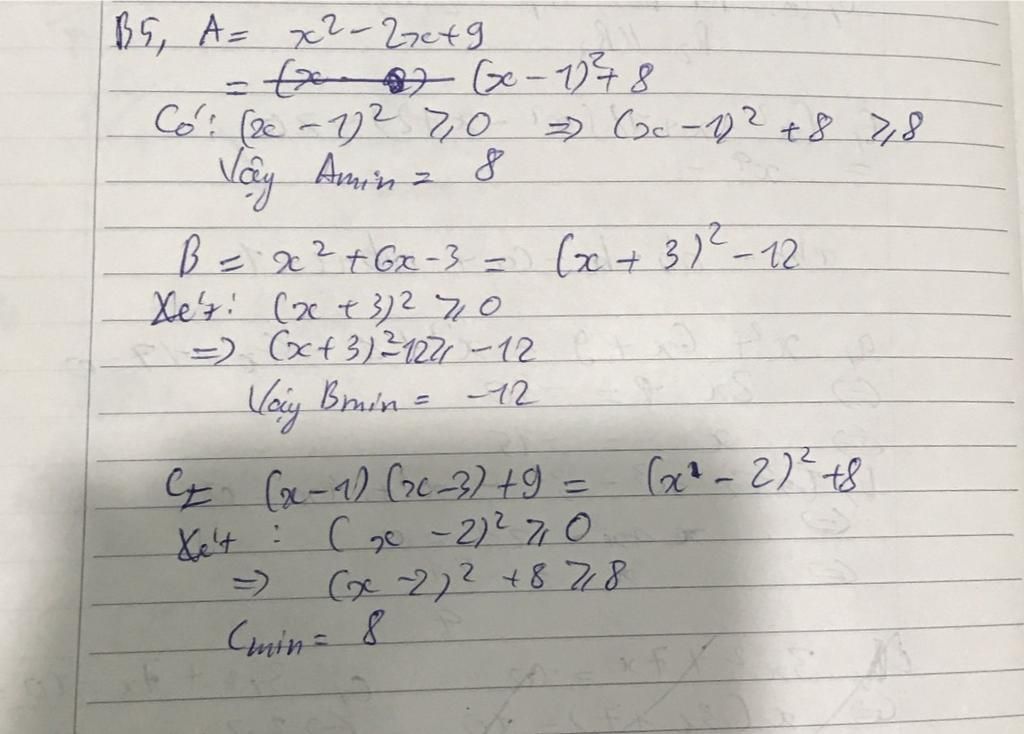 B5, A = x² - 2x + 9
= (x - 1)² + 8
Có: (x - 1)² ⩾ 0 => (x - 1)² + 8 ⩾ 8
Vậy Amin = 8
B = x² + 6x - 3 = (x + 3)² - 12
Xét: (x + 3)² ⩾ 0
=> (x + 3)² - 12 ⩾ -12
Vậy Bmin = -12
C = (x - 1) (x - 3) + 9 = (x - 2)² + 8
Xét : (x - 2)² ⩾ 0
=> (x - 2)² + 8 ⩾ 8
Cmin = 8